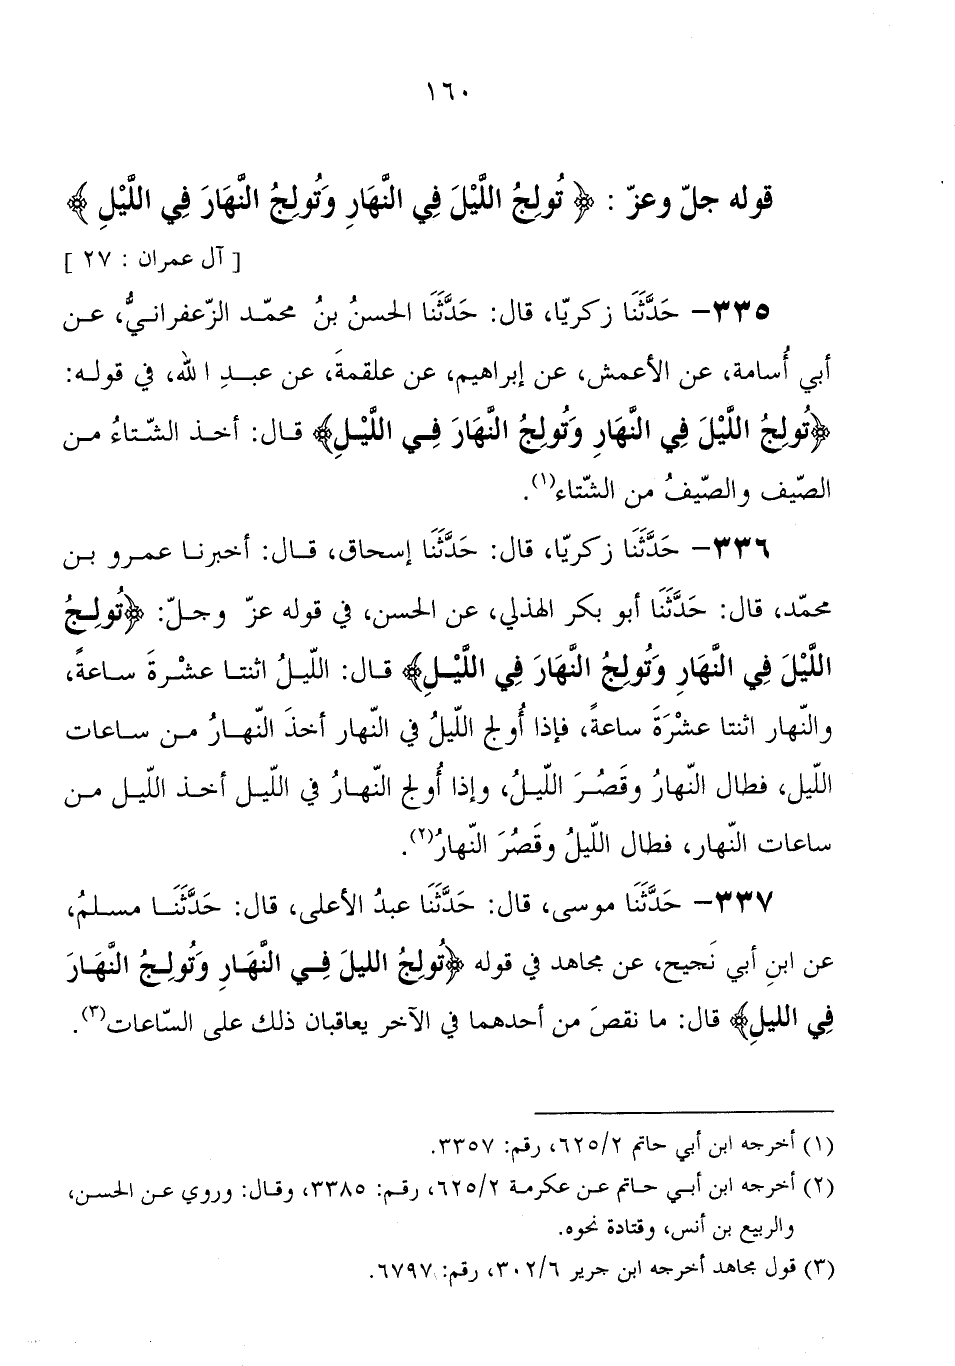 ١٦٠
قوله جلّ وعزّ : ﴿ تُولِجُ اللَّيْلَ فِي النَّهَارِ وَتُولِجُ النَّهَارَ فِي اللَّيْلِ ﴾
[ آل عمران : ٢٧ ]
٣٣٥– حَدَّثَنَا زكريّا، قال: حَدَّثَنَا الحسنُ بنُ محمّد الزّعفرانيُّ، عن
أبي أُسامة، عن الأعمش، عن إبراهيم، عن علقمةَ، عن عبدِ الله، في قوله:
﴿تُولِجُ اللَّيْلَ فِي النَّهَارِ وَتُولِجُ النَّهَارَ فِي اللَّيْلِ﴾ قال: أخذ الشّتاءُ من
الصّيف والصّيفُ من الشّتاء(١).
٣٣٦– حَدَّثَنَا زكريّا، قال: حَدَّثَنَا إسحاق، قال: أخبرنا عمرو بن
محمّد، قال: حَدَّثَنَا أبو بكر الهذلي، عن الحسن، في قوله عزّ وجلّ: ﴿تُولِجُ
اللَّيْلَ فِي النَّهَارِ وَتُولِجُ النَّهَارَ فِي اللَّيْلِ﴾ قال: اللّيلُ اثنتا عشْرةَ ساعةً،
والنّهار اثنتا عشْرَةَ ساعةً، فإذا أُولج اللّيلُ في النّهار أخذَ النّهارُ من ساعات
اللّيل، فطال النّهارُ وقَصُرَ اللّيلُ، وإذا أُولج النّهارُ في الليل أخذ اللّيل من
ساعات النّهار، فطال اللّيلُ وقَصُرَ النّهارُ(٢).
٣٣٧– حَدَّثَنَا موسى، قال: حَدَّثَنَا عبدُ الأعلى، قال: حَدَّثَنَا مسلمُ،
عن ابنِ أبي نَجيح، عن مجاهد في قوله ﴿تُولِجُ الليلَ فِي النَّهَارِ وَتُولِجُ النَّهَارَ
فِي الليلِ﴾ قال: ما نقصَ من أحدهما في الآخر يعاقبان ذلك على السّاعات(٣).
(١) أخرجه ابن أبي حاتم ٦٢٥/٢، رقم: ٣٣٥٧.
(٢) أخرجه ابن أبي حاتم عن عكرمة ٦٢٥/٢، رقم: ٣٣٨٥، وقال: وروي عن الحسن،
والربيع بن أنس، وقتادة نحوه.
(٣) قول مجاهد أخرجه ابن جرير ٣٠٢/٦، رقم: ٦٧٩٧.